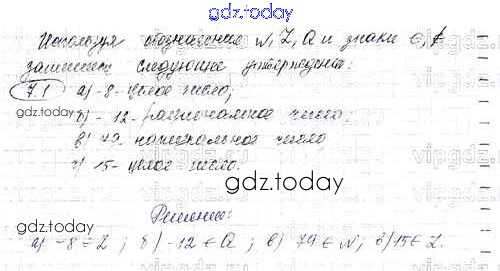 gdz.today
Используя обозначение N, Z, Q и знаки ∈, ∉
запишите следующие утверждения:
7.1 а) -8 - целое число;
б) - 12 - рациональное число;
в) 79 - натуральное число
г) 15 - целое число.
gdz.today
gdz.today
Решение:
а) -8 ∈ Z ; б) -12 ∈ Q ; в) 79 ∈ N; в) 15 ∈ Z.
gdz.today